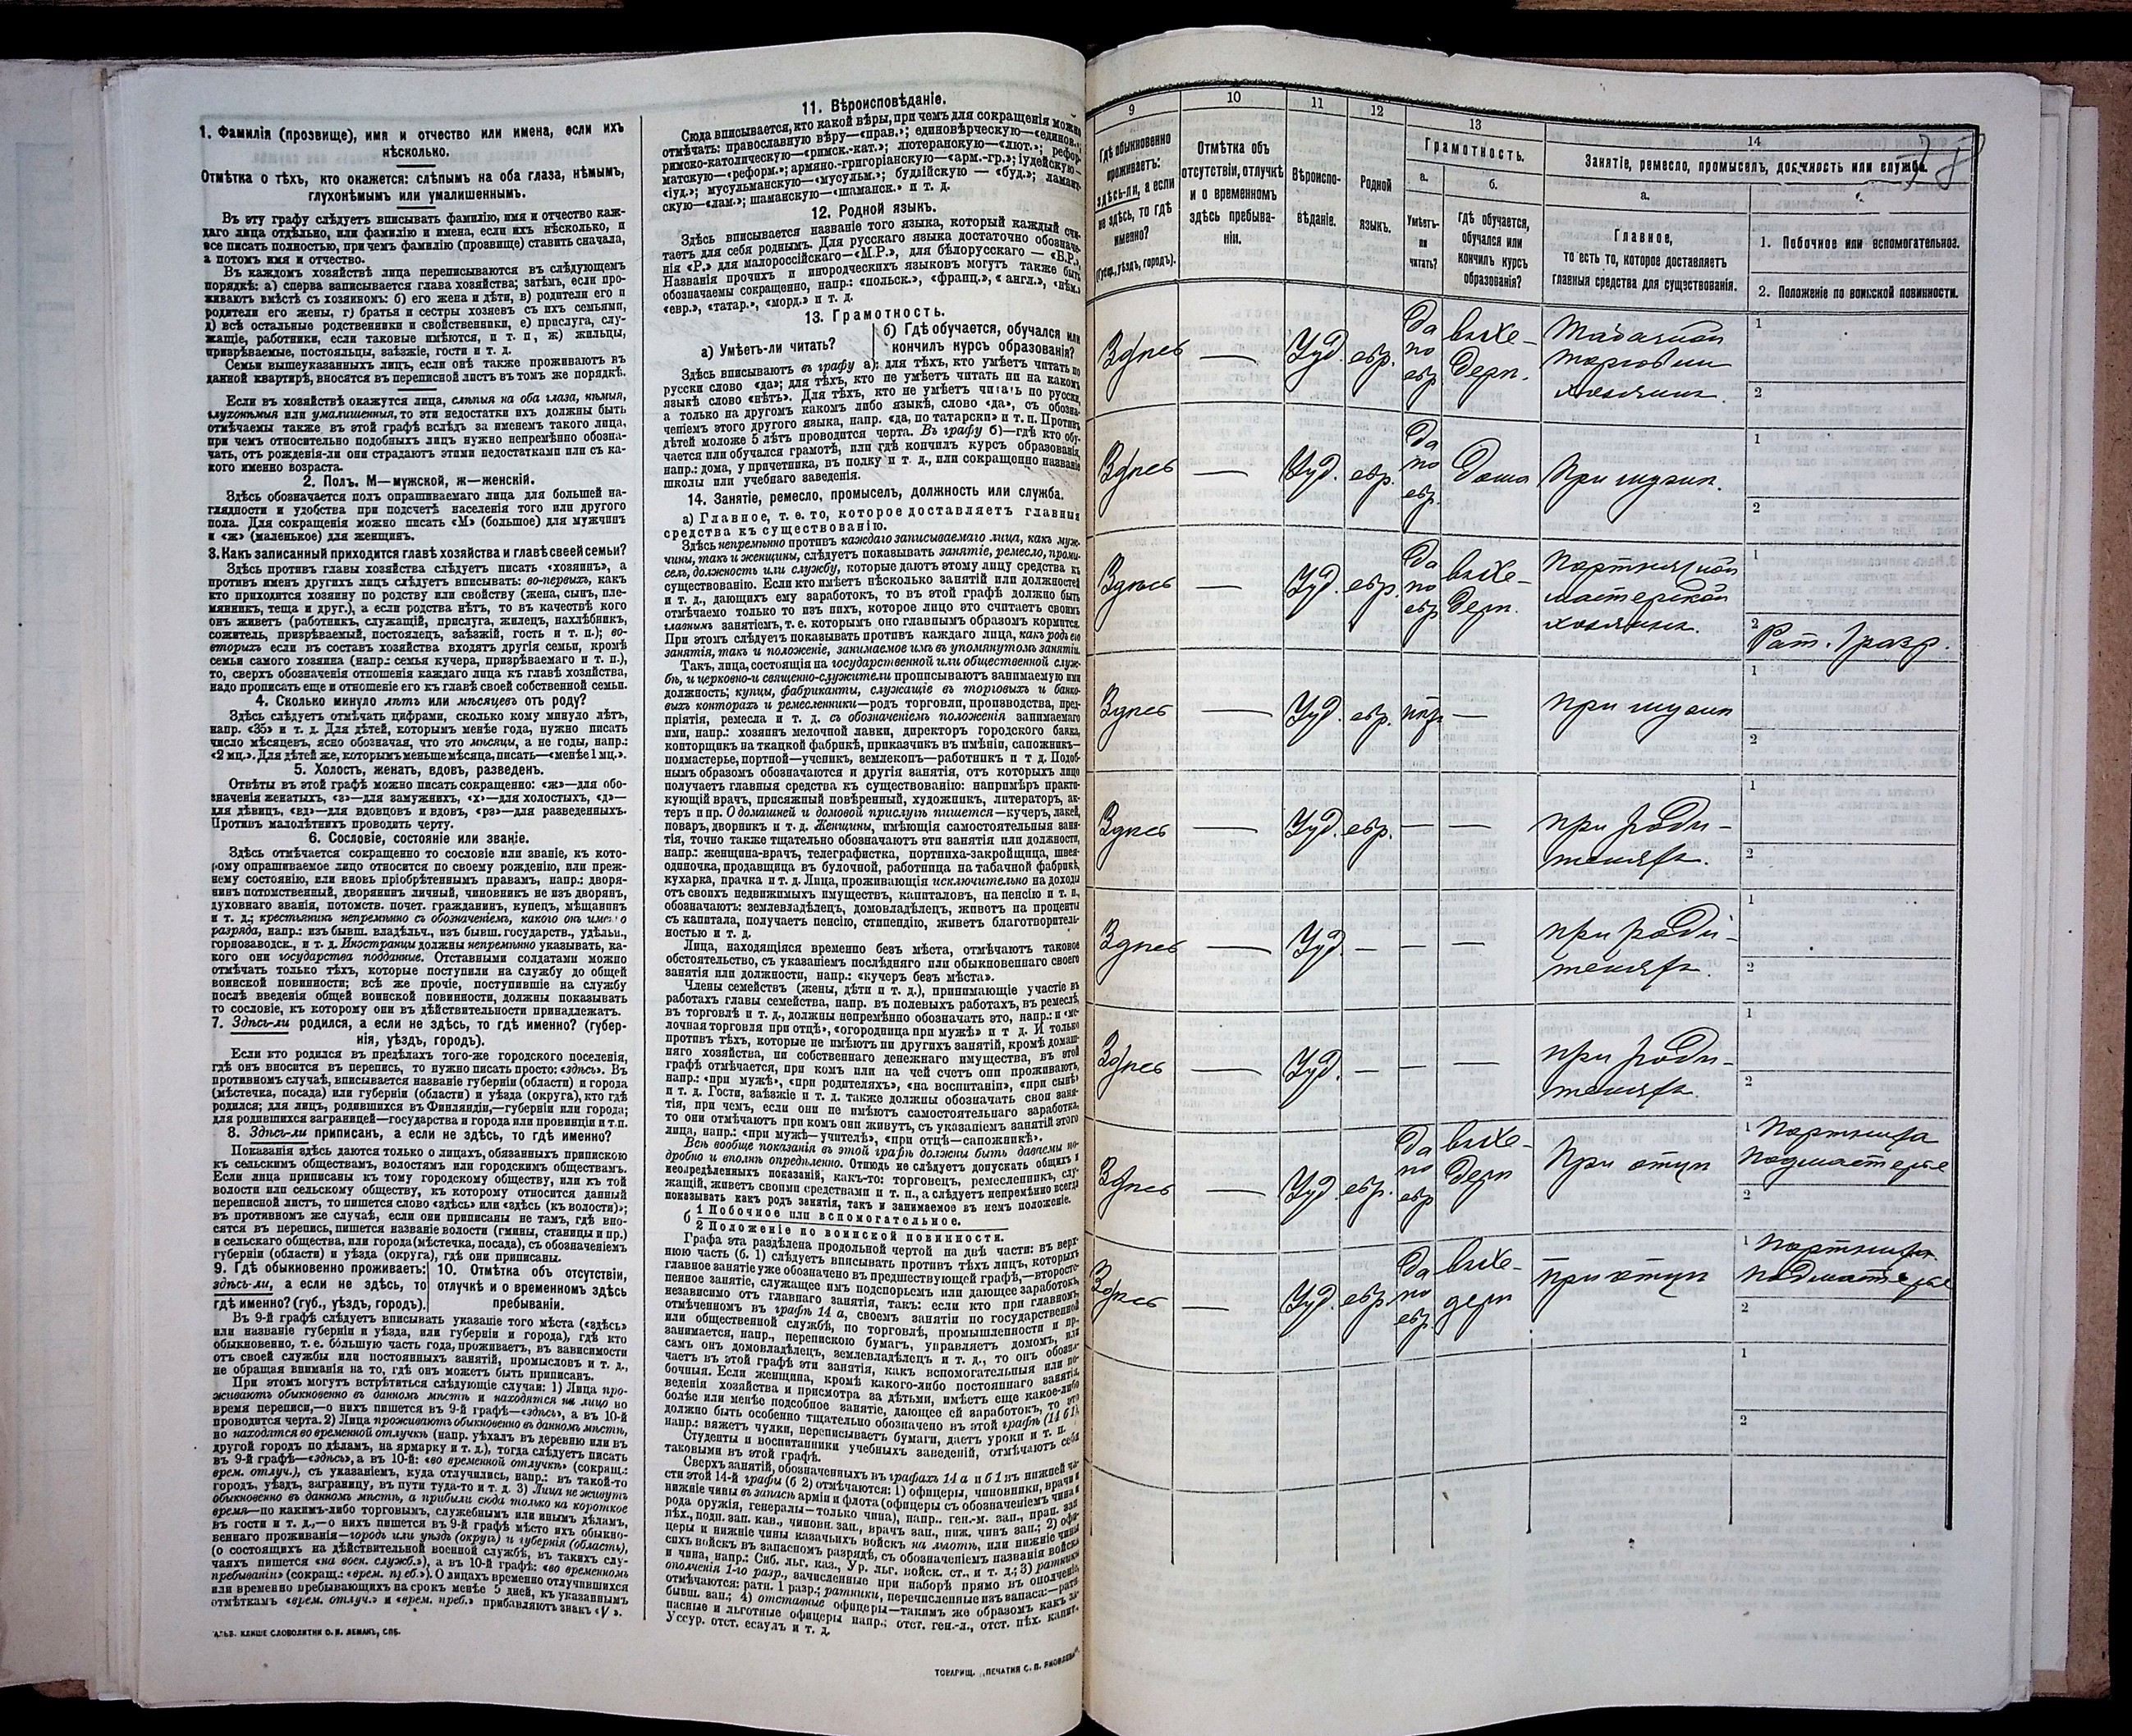 1. Фамилія (прозвище), имя и отчество или имена, если ихъ
нѣсколько.
Отмѣтка о тѣхъ, кто окажется: слѣпымъ на оба глаза, нѣмымъ,
глухонѣмымъ или умалишеннымъ.
Въ эту графу слѣдуетъ вписывать фамилію, имя и отчество каж-
даго лица отдѣльно, или фамилію и имена, если ихъ нѣсколько, и
все писать полностью, при чемъ фамилію (прозвище) ставить сначала,
а потомъ имя и отчество.
Въ каждомъ хозяйствѣ лица переписываются въ слѣдующемъ
порядкѣ: а) сперва записывается глава хозяйства; затѣмъ, если про-
живаютъ вмѣстѣ съ хозяиномъ: б) его жена и дѣти, в) родители его и
родители его жены, г) братья и сестры хозяевъ съ ихъ семьями,
д) всѣ остальные родственники и свойственники, е) прислуга, слу-
жащіе, работники, если таковые имѣются, и т. п., ж) жильцы,
призрѣваемые, постояльцы, заѣзжіе, гости и т. д.
Семьи вышеуказанныхъ лицъ, если онѣ также проживаютъ въ
данной квартирѣ, вносятся въ переписной листъ въ томъ же порядкѣ.
Если въ хозяйствѣ окажутся лица, слѣпыя на оба глаза, нѣмыя,
глухонѣмыя или умалишенныя, то эти недостатки ихъ должны быть
отмѣчаемы также въ этой графѣ вслѣдъ за именемъ такого лица,
при чемъ относительно подобныхъ лицъ нужно непремѣнно обозна-
чать, отъ рожденія-ли они страдаютъ этими недостатками или съ ка-
кого именно возраста.
2. Полъ. М—мужской, ж—женскій.
Здѣсь обозначается полъ опрашиваемаго лица для большей на-
глядности и удобства при подсчетѣ населенія того или другого
пола. Для сокращенія можно писать «М» (большое) для мужчинъ
и «ж» (маленькое) для женщинъ.
3. Какъ записанный приходится главѣ хозяйства и главѣ своей семьи?
Здѣсь противъ главы хозяйства слѣдуетъ писать «хозяинъ», а
противъ именъ другихъ лицъ слѣдуетъ вписывать: во-первыхъ, какъ
кто приходится хозяину по родству или свойству (жена, сынъ, пле-
мянникъ, теща и друг.), а если родства нѣтъ, то въ качествѣ кого
онъ живетъ (работникъ, служащій, прислуга, жилецъ, нахлѣбникъ,
сожитель, призрѣваемый, постоялецъ, заѣзжій, гость и т. п.); во-
вторыхъ если въ составъ хозяйства входятъ другія семьи, кромѣ
семьи самого хозяина (напр.: семья кучера, призрѣваемаго и т. п.),
то, сверхъ обозначенія отношенія каждаго лица къ главѣ хозяйства,
надо прописать еще и отношеніе его къ главѣ своей собственной семьи.
4. Сколько минуло лѣтъ или мѣсяцевъ отъ роду?
Здѣсь слѣдуетъ отмѣчать цифрами, сколько кому минуло лѣтъ,
напр. «35» и т. д. Для дѣтей, которымъ менѣе года, нужно писать
число мѣсяцевъ, ясно обозначая, что это мѣсяцы, а не годы, напр.:
«2 мц.». Для дѣтей же, которымъ меньше мѣсяца, писать—«менѣе 1 мц.».
5. Холостъ, женатъ, вдовъ, разведенъ.
Отвѣты въ этой графѣ можно писать сокращенно: «ж»—для обо-
значенія женатыхъ, «з»—для замужнихъ, «х»—для холостыхъ, «д»—
для дѣвицъ, «вд»—для вдовцовъ и вдовъ, «рз»—для разведенныхъ.
Противъ малолѣтнихъ проводить черту.
6. Сословіе, состояніе или званіе.
Здѣсь отмѣчается сокращенно то сословіе или званіе, къ кото-
рому опрашиваемое лицо относится по своему рожденію, или преж-
нему состоянію, или вновь пріобрѣтеннымъ правамъ, напр.: дворя-
нинъ потомственный, дворянинъ личный, чиновникъ не изъ дворянъ,
духовнаго званія, потомств. почет. гражданинъ, купецъ, мѣщанинъ
и т. д.; крестьянинъ непремѣнно съ обозначеніемъ, какого онъ именно
разряда, напр.: изъ бывш. владѣльч., изъ бывш. государств., удѣльн.,
горнозаводск., и т. д. Иностранцы должны непремѣнно указывать, ка-
кого они государства подданные. Отставными солдатами можно
отмѣчать только тѣхъ, которые поступили на службу до общей
воинской повинности; всѣ же прочіе, поступившіе на службу
послѣ введенія общей воинской повинности, должны показывать
то сословіе, къ которому они въ дѣйствительности принадлежатъ.
7. Здѣсь-ли родился, а если не здѣсь, то гдѣ именно? (губер-
нія, уѣздъ, городъ).
Если кто родился въ предѣлахъ того-же городского поселенія,
гдѣ онъ вносится въ перепись, то нужно писать просто: «здѣсь». Въ
противномъ случаѣ, вписывается названіе губерніи (области) и города
(мѣстечка, посада) или губерніи (области) и уѣзда (округа), кто гдѣ
родился; для лицъ, родившихся въ Финляндіи,—губерніи или города;
для родившихся заграницей—государства и города или провинціи и т.п.
8. Здѣсь-ли приписанъ, а если не здѣсь, то гдѣ именно?
Показанія здѣсь даются только о лицахъ, обязанныхъ припискою
къ сельскимъ обществамъ, волостямъ или городскимъ обществамъ.
Если лица приписаны къ тому городскому обществу, или къ той
волости или сельскому обществу, къ которому относится данный
переписной листъ, то пишется слово «здѣсь» или «здѣсь (къ волости)»;
въ противномъ же случаѣ, если они приписаны не тамъ, гдѣ вно-
сятся въ перепись, пишется названіе волости (гмины, станицы и пр.)
и сельскаго общества, или города (мѣстечка, посада), съ обозначеніемъ
губерніи (области) и уѣзда (округа), гдѣ они приписаны.
9. Гдѣ обыкновенно проживаетъ:
здѣсь-ли, а если не здѣсь, то
гдѣ именно? (губ., уѣздъ, городъ).
10. Отмѣтка объ отсутствіи,
отлучкѣ и о временномъ здѣсь
пребываніи.
Въ 9-й графѣ слѣдуетъ вписывать указаніе того мѣста («здѣсь»
или названіе губерніи и уѣзда, или губерніи и города), гдѣ кто
обыкновенно, т. е. бо́льшую часть года, проживаетъ, въ зависимости
отъ своей службы или постоянныхъ занятій, промысловъ и т. д.,
не обращая вниманія на то, гдѣ онъ можетъ быть приписанъ.
При этомъ могутъ встрѣтиться слѣдующіе случаи: 1) Лица про-
живаютъ обыкновенно въ данномъ мѣстѣ и находятся на лицо во
время переписи,—о нихъ пишется въ 9-й графѣ—«здѣсь», а въ 10-й
проводится черта. 2) Лица проживаютъ обыкновенно въ данномъ мѣстѣ,
но находятся во временной отлучкѣ (напр. уѣхалъ въ деревню или въ
другой городъ по дѣламъ, на ярмарку и т. д.), тогда слѣдуетъ писать
въ 9-й графѣ—«здѣсь», а въ 10-й: «во временной отлучкѣ» (сокращ.:
врем. отлуч.), съ указаніемъ, куда отлучились, напр.: въ такой-то
городъ, уѣздъ, заграницу, въ пути туда-то и т. д. 3) Лица не живутъ
обыкновенно въ данномъ мѣстѣ, а прибыли сюда только на короткое
время—по какимъ-либо торговымъ, служебнымъ или инымъ дѣламъ,
въ гости и т. д.,—о нихъ пишется въ 9-й графѣ мѣсто ихъ обыкно-
веннаго проживанія—городъ или уѣздъ (округъ) и губернія (область),
(о состоящихъ на дѣйствительной военной службѣ, въ такихъ слу-
чаяхъ пишется «на воен. служб.»), а въ 10-й графѣ: «во временномъ
пребываніи» (сокращ.: «врем. преб.»). О лицахъ временно отлучившихся
или временно пребывающихъ на срокъ менѣе 5 дней, къ указаннымъ
отмѣткамъ «врем. отлуч.» и «врем. преб.» прибавляютъ знакъ «V».
11. Вѣроисповѣданіе.
Сюда вписывается, кто какой вѣры, при чемъ для сокращенія можно
отмѣчать: православную вѣру—«прав.»; единовѣрческую—«единов.»;
римско-католическую—«римск.-кат.»; лютеранскую—«лют.»; рефор-
матскую—«реформ.»; армяно-григоріанскую—«арм.-гр.»; іудейскую—
«іуд.»; мусульманскую—«мусульм.»; буддійскую — «буд.»; ламай-
скую—«лам.»; шаманскую—«шаманск.» и т. д.
12. Родной языкъ.
Здѣсь вписывается названіе того языка, который каждый счи-
таетъ для себя роднымъ. Для русскаго языка достаточно обозначе-
нія «Р.» для малороссійскаго—«М.Р.», для бѣлорусскаго — «Б.Р.»,
Названія прочихъ и инородческихъ языковъ могутъ также быть
обозначаемы сокращенно, напр.: «польск.», «франц.», «англ.», «нѣм.»
«евр.», «татар.», «морд.» и т. д.
13. Грамотность.
а) Умѣетъ-ли читать?
б) Гдѣ обучается, обучался или
кончилъ курсъ образованія?
Здѣсь вписываютъ въ графу а): для тѣхъ, кто умѣетъ читать по
русски слово «да»; для тѣхъ, кто не умѣетъ читать ни на какомъ
языкѣ слово «нѣтъ». Для тѣхъ, кто не умѣетъ читать по русски,
а только на другомъ какомъ либо языкѣ, слово «да», съ обозна-
ченіемъ этого другого языка, напр. «да, по татарски» и т. п. Противъ
дѣтей моложе 5 лѣтъ проводится черта. Въ графу б)—гдѣ кто обу-
чается или обучался грамотѣ, или гдѣ кончилъ курсъ образованія,
напр.: дома, у причетника, въ полку и т. д., или сокращенно названіе
школы или учебнаго заведенія.
14. Занятіе, ремесло, промыселъ, должность или служба.
а) Главное, т. е. то, которое доставляетъ главныя
средства къ существованію.
Здѣсь непремѣнно противъ каждаго записываемаго лица, какъ муж-
чины, такъ и женщины, слѣдуетъ показывать занятіе, ремесло, промы-
селъ, должность или службу, которые даютъ этому лицу средства къ
существованію. Если кто имѣетъ нѣсколько занятій или должностей
и т. д., дающихъ ему заработокъ, то въ этой графѣ должно быть
отмѣчаемо только то изъ нихъ, которое лицо это считаетъ своимъ
главнымъ занятіемъ, т. е. которымъ оно главнымъ образомъ кормится.
При этомъ слѣдуетъ показывать противъ каждаго лица, какъ родъ его
занятія, такъ и положеніе, занимаемое имъ въ упомянутомъ занятіи.
Такъ, лица, состоящія на государственной или общественной служ-
бѣ, и церковно-и священно-служители прописываютъ занимаемую ими
должность; купцы, фабриканты, служащіе въ торговыхъ и банко-
выхъ конторахъ и ремесленники—родъ торговли, производства, пред-
пріятія, ремесла и т. д. съ обозначеніемъ положенія занимаемаго
ими, напр.: хозяинъ мелочной лавки, директоръ городского банка,
конторщикъ на ткацкой фабрикѣ, приказчикъ въ имѣніи, сапожникъ—
подмастерье, портной—ученикъ, землекопъ—работникъ и т. д. Подоб-
нымъ образомъ обозначаются и другія занятія, отъ которыхъ лицо
получаетъ главныя средства къ существованію: напримѣръ практи-
кующій врачъ, присяжный повѣренный, художникъ, литераторъ, ак-
теръ и пр. О домашней и домовой прислугѣ пишется—кучеръ, лакей,
поваръ, дворникъ и т. д. Женщины, имѣющія самостоятельныя заня-
тія, точно также тщательно обозначаютъ эти занятія или должности,
напр.: женщина-врачъ, телеграфистка, портниха-закройщица, швея-
одиночка, продавщица въ булочной, работница на табачной фабрикѣ,
кухарка, прачка и т. д. Лица, проживающія исключительно на доходы
отъ своихъ недвижимыхъ имуществъ, капиталовъ, на пенсію и т. п.,
обозначаютъ: землевладѣлецъ, домовладѣлецъ, живетъ на проценты
съ капитала, получаетъ пенсію, стипендію, живетъ благотворитель-
ностью и т. д.
Лица, находящіяся временно безъ мѣста, отмѣчаютъ таковое
обстоятельство, съ указаніемъ послѣдняго или обыкновеннаго своего
занятія или должности, напр.: «кучеръ безъ мѣста».
Члены семействъ (жены, дѣти и т. д.), принимающіе участіе въ
работахъ главы семейства, напр. въ полевыхъ работахъ, въ ремеслѣ,
въ торговлѣ и т. д., должны непремѣнно обозначать это, напр.: и «ме-
лочная торговля при отцѣ», «огородница при мужѣ» и т. д. И только
противъ тѣхъ, которые не имѣютъ ни другихъ занятій, кромѣ домаш-
няго хозяйства, ни собственнаго денежнаго имущества, въ этой
графѣ отмѣчается, при комъ или на чей счетъ они проживаютъ,
напр.: «при мужѣ», «при родителяхъ», «на воспитаніи», «при сынѣ»
и т. д. Гости, заѣзжіе и т. д. также должны обозначать свои заня-
тія, при чемъ, если они не имѣютъ самостоятельнаго заработка,
то они отмѣчаютъ при комъ они живутъ, съ указаніемъ занятій этого
лица, напр.: «при мужѣ—учителѣ», «при отцѣ—сапожникѣ».
Всѣ вообще показанія въ этой графѣ должны быть даваемы по-
дробно и вполнѣ опредѣленно. Отнюдь не слѣдуетъ допускать общихъ и
неопредѣленныхъ показаній, какъ-то: торговецъ, ремесленникъ, слу-
жащій, живетъ своими средствами и т. п., а слѣдуетъ непремѣнно всегда
показывать какъ родъ занятія, такъ и занимаемое въ немъ положеніе.
б 1 Побочное или вспомогательное.
2 Положеніе по воинской повинности.
Графа эта раздѣлена продольной чертой на двѣ части: въ верх-
нюю часть (б. 1) слѣдуетъ вписывать противъ тѣхъ лицъ, которыхъ
главное занятіе уже обозначено въ предшествующей графѣ,—второсте-
пенное занятіе, служащее имъ подспорьемъ или дающее заработокъ,
независимо отъ главнаго занятія, такъ: если кто при главномъ,
отмѣченномъ въ графѣ 14 а, своемъ занятіи по государственной
или общественной службѣ, по торговлѣ, промышленности и пр.
занимается, напр., перепискою бумагъ, управляетъ домомъ, или
самъ онъ домовладѣлецъ, землевладѣлецъ и т. д., то онъ обозна-
чаетъ въ этой графѣ эти занятія, какъ вспомогательныя или по-
бочныя. Если женщина, кромѣ какого-либо постояннаго занятія,
веденія хозяйства и присмотра за дѣтьми, имѣетъ еще какое-либо
болѣе или менѣе подсобное занятіе, дающее ей заработокъ, то это
должно быть особенно тщательно обозначено въ этой графѣ (14 б 1),
напр.: вяжетъ чулки, переписываетъ бумаги, даетъ уроки и т. п.
Студенты и воспитанники учебныхъ заведеній, отмѣчаютъ себя
таковыми въ этой графѣ.
Сверхъ занятій, обозначенныхъ въ графахъ 14 а и б 1 въ нижней ча-
сти этой 14-й графы (б 2) отмѣчаются: 1) офицеры, чиновники, врачи и
нижніе чины въ запасѣ арміи и флота (офицеры съ обозначеніемъ чина и
рода оружія, генералы—только чина), напр.. ген.-м. зап., прап. зап.
пѣх., подп. зап. кав., чиновн. зап., врачъ зап., ниж. чинъ зап.; 2) офи-
церы и нижніе чины казачьихъ войскъ на льготѣ, или нижніе чины
сихъ войскъ въ запасномъ разрядѣ, съ обозначеніемъ названія войска
и чина, напр.: Сиб. льг. каз., Ур. льг. войск. ст., и т. д.; 3) ратники
ополченія 1-го разр., зачисленные при наборѣ прямо въ ополченіе,
отмѣчаются: ратн. 1 разр.; ратники, перечисленные изъ запаса:—ратн.
бывш. зап.; 4) отставные офицеры—такимъ же образомъ какъ за-
пасные и льготные офицеры напр.: отст. ген.-л., отст. пѣх. капит.
Уссур. отст. есаулъ и т. д.
ТОВАРИЩ. „ПЕЧАТНЯ С. П. ЯКОВЛЕВА“
9
10
11
12
13
14
Гдѣ обыкновенно
проживаетъ:
здѣсь-ли, а если
не здѣсь, то гдѣ
именно?
(Губер., уѣздъ, городъ).
Отмѣтка объ
отсутствіи, отлучкѣ
и о временномъ
здѣсь пребыва-
ніи.
Вѣроиспо-
вѣданіе.
Родной
языкъ.
Грамотность.
а.
б.
Умѣетъ-
ли
читать?
гдѣ обучается,
обучался или
кончилъ курсъ
образованія?
Занятіе, ремесло, промыселъ, должность или служба.
а.
Главное,
то есть то, которое доставляетъ
главныя средства для существованія.
1. Побочное или вспомогательное.
2. Положеніе по воинской повинности.
Здѣсь — Іуд. евр. да по евр. въ хе-дерѣ. Табачной торговли хозяинъ. 1 2
Здѣсь — Іуд. евр. да по евр. Дома При мужѣ. 1 2
Здѣсь — Іуд. евр. да по евр. въ хе-дерѣ. Портняжной мастерской хозяинъ. 1 2 Рат. 1 разр.
Здѣсь — Іуд. евр. нѣтъ — При мужѣ 1 2
Здѣсь — Іуд. евр. — — при роди-теляхъ. 1 2
Здѣсь — Іуд. — — — при роди-теляхъ. 1 2
Здѣсь — Іуд. — — — при роди-теляхъ. 1 2
Здѣсь — Іуд. евр. да по евр. въ хе-дерѣ При отцѣ 1 подмастерье 2
Здѣсь — Іуд. евр. да по евр. въ хе-дерѣ при отцѣ 1 подмастерье 2
1
2